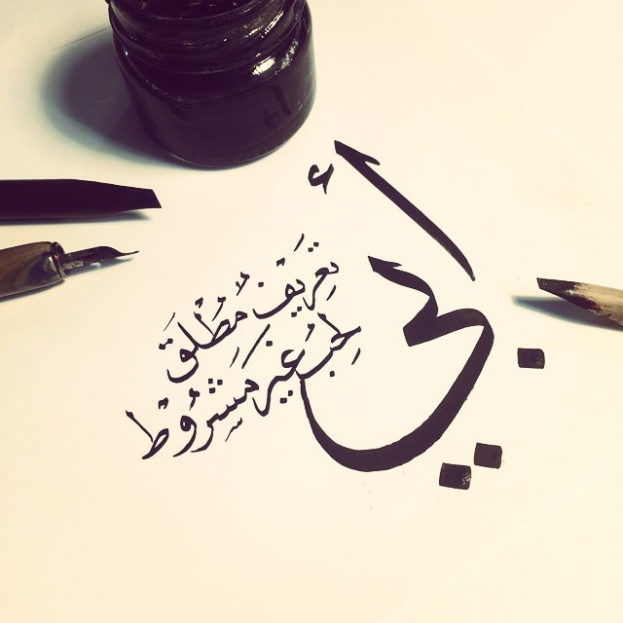 أبي
تعريف مُطْلَق
لِحُب غير مَشرُوْط